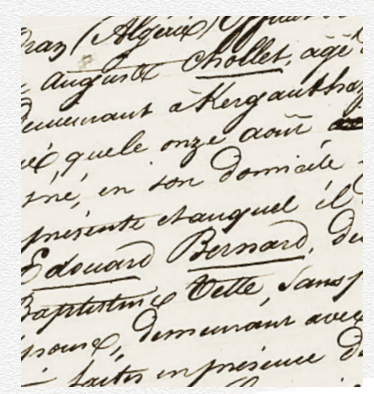 Oran (Algérie)
Auguste Chollet, âgé
demeurant à Kergauthas
né, que le onze août,
gné, en son domicile
présente et auquel il
Edouard Bernard, De
Baptistine Vette, Sans p
pouse, demeurant avec
faites en présence d